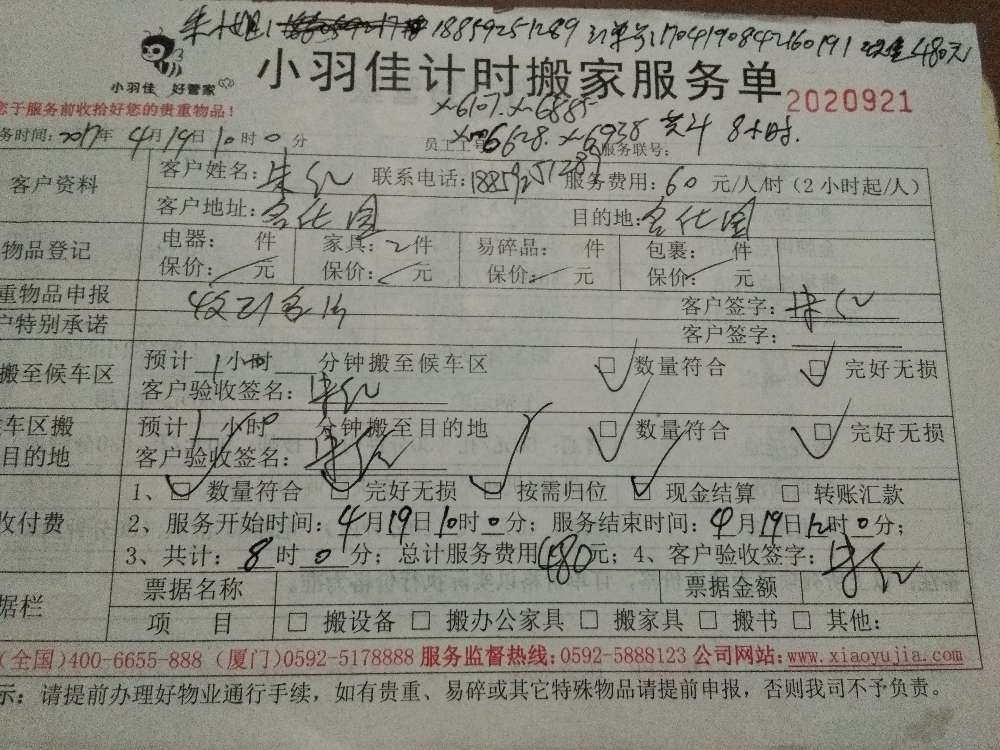 朱小姐 18859251289 订单号170419084260191 现金480元
小羽佳 好管家
小羽佳计时搬家服务单
2020921
您于服务前收拾好您的贵重物品!
X-6107. X-6885
务时间: 2017年 4月19日 10时 0分 员工工号 X-6628. X-6938 服务联号: 共4人 8小时.
客户资料 客户姓名: 朱红 联系电话: 18859251289 服务费用: 60 元/人/时(2小时起/人)
客户地址: 目的地:
物品登记 电器: 件 家具: 2件 易碎品: 件 包裹: 件
保价: 元 保价: 元 保价: 元 保价: 元
重物品申报 客户签字: 朱红
户特别承诺 客户签字:
搬至候车区 预计 1 小时 分钟搬至候车区 □ 数量符合 □ 完好无损
客户验收签名: 朱红
车区搬 预计 1 小时 分钟搬至目的地 □ 数量符合 □ 完好无损
目的地 客户验收签名: 朱红
1、□ 数量符合 □ 完好无损 □ 按需归位 □ 现金结算 □ 转账汇款
收付费 2、服务开始时间: 4月19日10时0分; 服务结束时间: 4月19日12时0分;
3、共计: 8 时 0 分; 总计服务费用 480 元; 4、客户验收签字: 朱红
据栏 票据名称 票据金额
项 目 □ 搬设备 □ 搬办公家具 □ 搬家具 □ 搬书 □ 其他:
(全国)400-6655-888 (厦门)0592-5178888 服务监督热线:0592-5888123 公司网站:www.xiaoyujia.com
示: 请提前办理好物业通行手续, 如有贵重、易碎或其它特殊物品请提前申报, 否则我司不予负责。